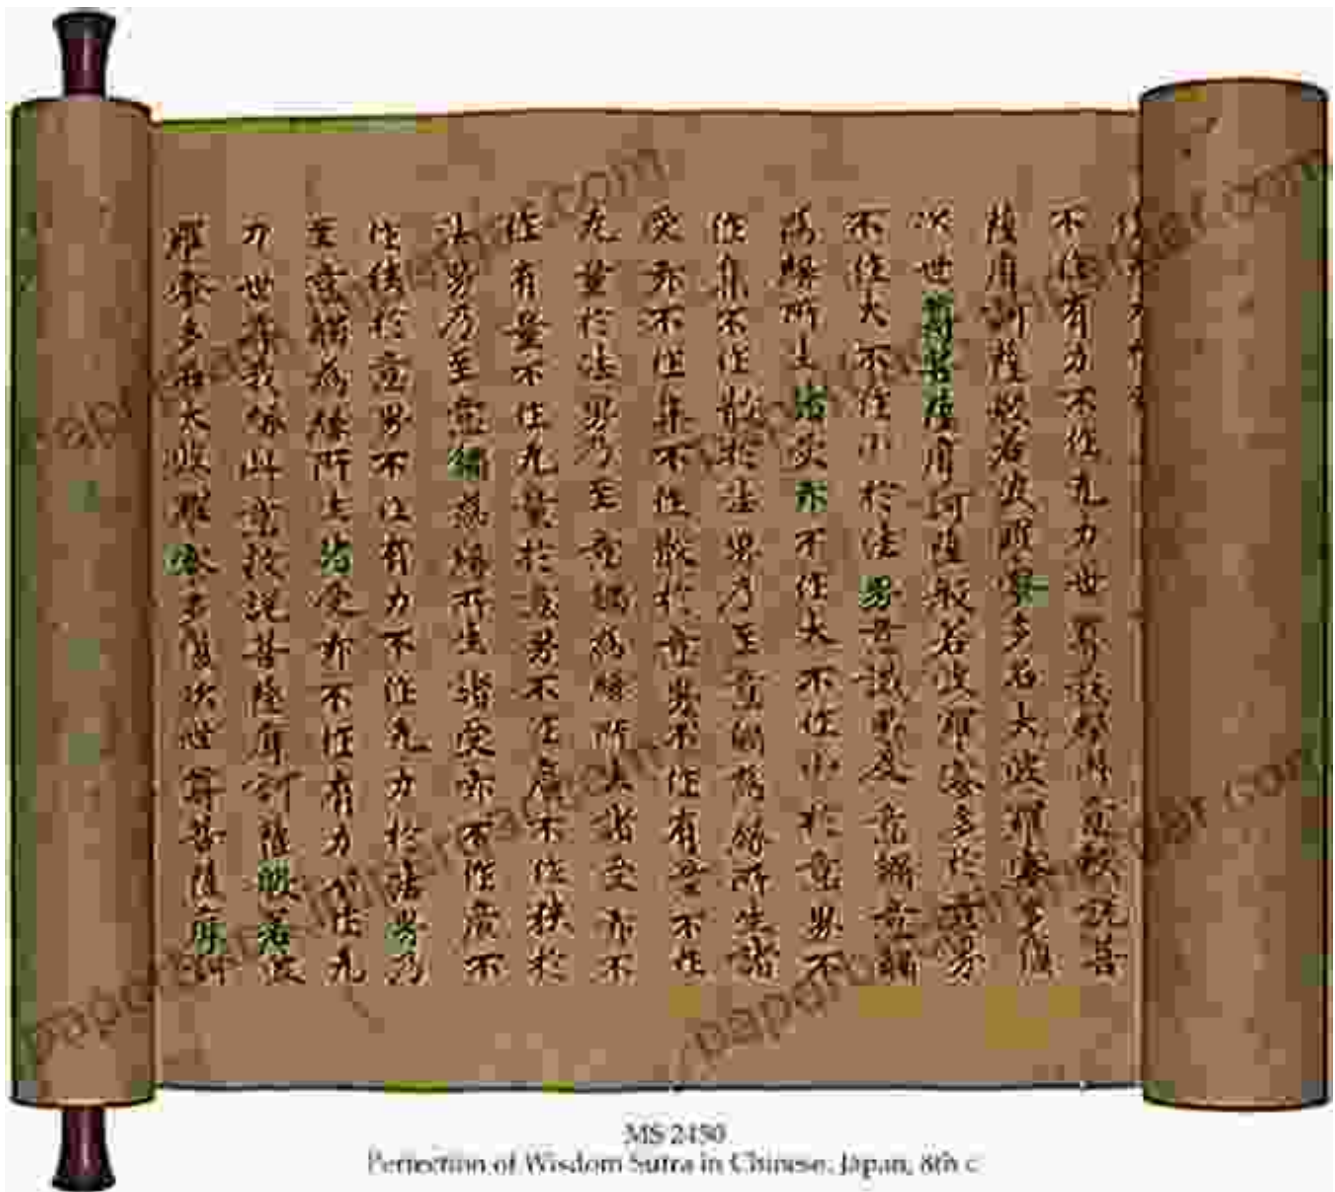 不作有力不作无力世尊我緣此意故說菩
薩摩訶薩般若波羅蜜多名大波羅蜜多復
次世菩薩摩訶薩般若波羅蜜多於意界
不作大不作小於法界意識界及意觸意觸
為緣所生諸受亦不作大不作小於意界不
作集不作散於法界乃至意觸為緣所生諸
受亦不作集不作散於意界不作有量不作
无量於法界乃至意觸為緣所生諸受亦不
作有量不作无量於意界不作廣不作狹於
法界乃至意觸為緣所生諸受亦不作廣不
作狹於意界不作有力不作无力於法界乃
至意觸為緣所生諸受亦不作有力不作无
力世尊我緣此意故說菩薩摩訶薩般若波
羅蜜多名大波羅蜜多復次世尊菩薩摩訶
MS 2450
Perfection of Wisdom Sutra in Chinese. Japan, 8th c